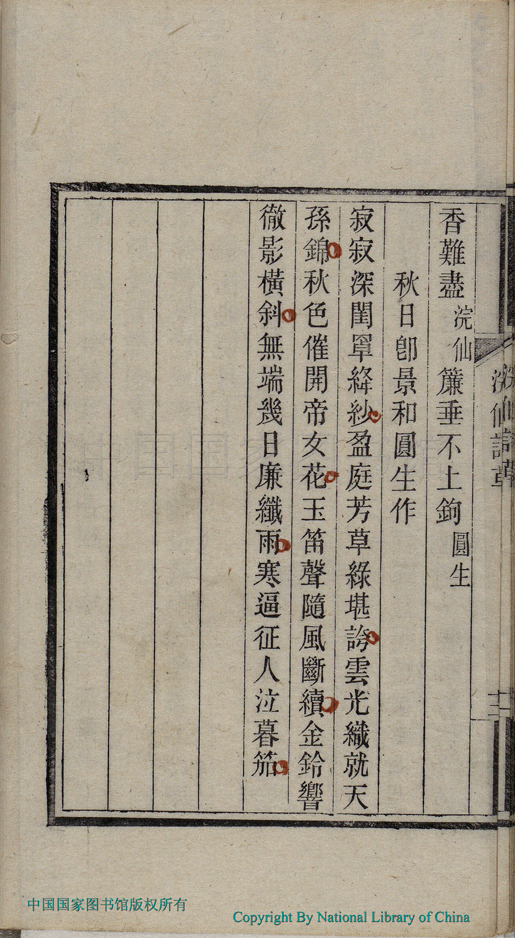 香難盡浣仙簾垂不上鉤圓生
秋日卽景和圓生作
寂寂深閨罩絳紗盈庭芳草綠堪誇雲光織就天
孫錦秋色催開帝女花玉笛聲隨風斷續金鈴響
徹影橫斜無端幾日廉纖雨寒逼征人泣暮笳
浣仙詩草
中国国家图书馆版权所有
Copyright By National Library of China